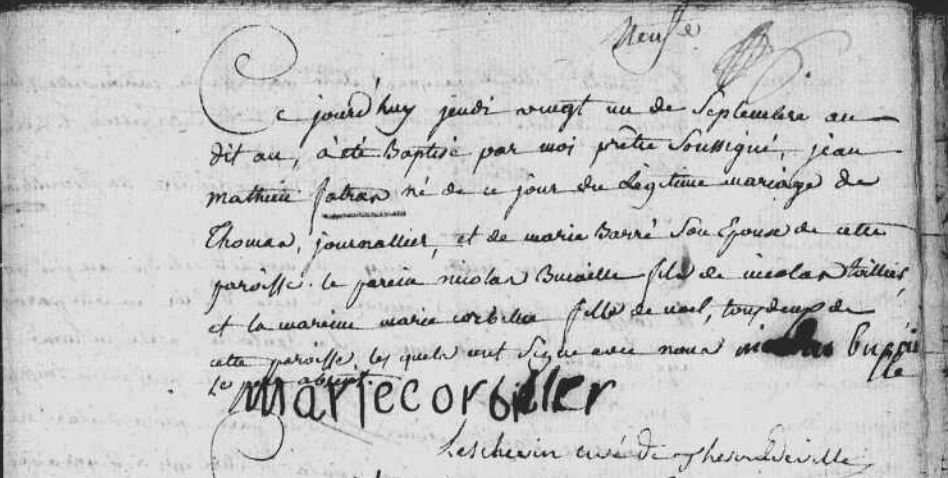 Ce jourd'huy jeudi vingt un de Septembre au
dit an, a été Baptisé par moi prêtre Soussigné, jean
mathieu fatras né de ce jour du Legitime mariage de
Thomas, journallier, et de marie Barré Son Epouse de cette
paroisse. le parein nicolas Bucaille fils de nicolas toillier,
et la mareine marie corbelier fille de noel, tous deux de
cette paroisse, les quels ont Signé avec nous
Marie corbiller
curé de